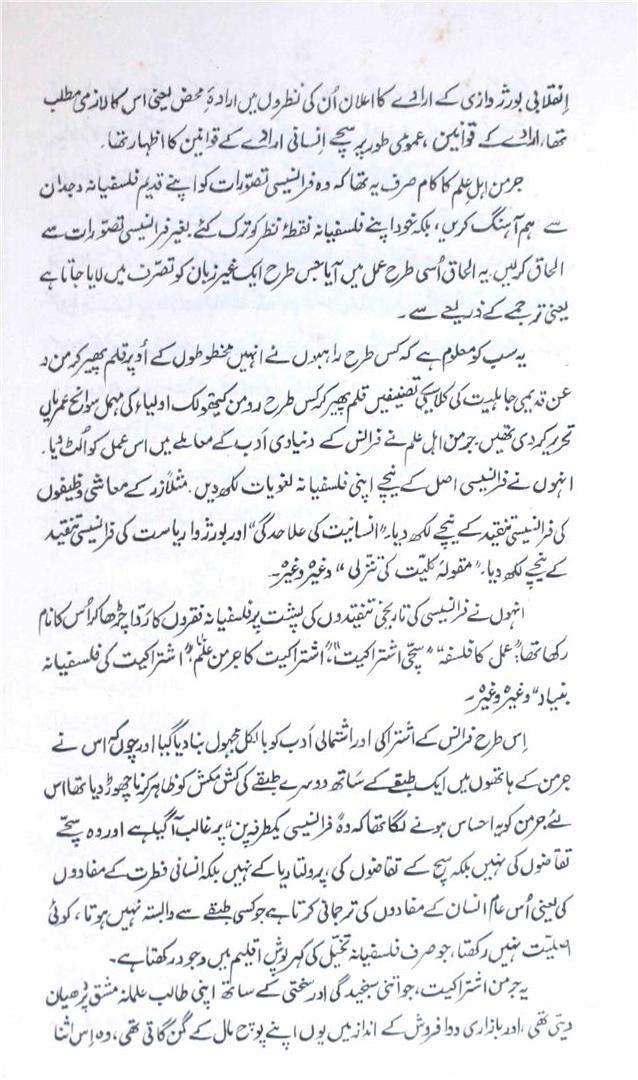 اِنقلابی بورژوازی کے ارادے کا اعلان اُن کی نظروں میں ارادۂ محض یعنی اس کا لازمی مطلب
تھا، ارادے کے قوانین، عمومی طور پر سچے اِنسانی ارادے کے قوانین کا اظہار تھا۔
جرمن اہلِ علم کا کام صرف یہ تھا کہ وہ فرانسیسی تصوّرات کو اپنے قدیم فلسفیانہ وجدان
سے ہم آہنگ کریں، بلکہ خود اپنے فلسفیانہ نقطۂ نظر کو ترک کئے بغیر فرانسیسی تصوّرات سے
الحاق کرلیں۔ یہ الحاق اُسی طرح عمل میں آیا جس طرح ایک غیر زبان کو تصرّف میں لایا جاتا ہے
یعنی ترجمے کے ذریعے سے۔
یہ سب کو معلوم ہے کہ کس طرح راہبوں نے انہیں مخطوطوں کے اُوپر قلم پھیر کر من و
عن قدیمی جاہلیت کی کلاسیکی تصنیفیں قلم پھیر کر کس طرح رومن کیتھولک اولیاء کی مہمل سوانح عمریاں
تحریر کردی تھیں۔ جرمن اہلِ علم نے فرانس کے دنیاوی اَدب کے معاملے میں اس عمل کو اُلٹ دیا۔
انہوں نے فرانسیسی اصل کے نیچے اپنی فلسفیانہ لغویات لکھ دیں۔ مثلاً زر کے معاشی وظیفوں
کی فرانسیسی تنقید کے نیچے لکھ دیا۔ "انسانیت کی علاحدگی" اور بورژوا ریاست کی فرانسیسی تنقید
کے نیچے لکھ دیا۔ "مقولۂ کلیّت کی تنزلی" وغیرہ وغیرہ۔
انہوں نے فرانسیسی کی تاریخی تنقیدوں کی پشت پر فلسفیانہ فقروں کا رَدّا چڑھا کر اُس کا نام
رکھا تھا: "عمل کا فلسفہ" "سچّی اشتراکیت"، "اشتراکیت کا جرمن علم"، "اشتراکیت کی فلسفیانہ
بنیاد" وغیرہ وغیرہ۔
اِس طرح فرانس کے اشتراکی اور اشتمالی اَدب کو بالکل مجہول بنادیا گیا اور چوں کہ اس نے
جرمن کے ہاتھوں میں ایک طبقے کے سَاتھ دوسرے طبقے کی کش مکش کو ظاہر کرنا چھوڑ دیا تھا اس
لئے جرمن کو یہ احساس ہونے لگا تھا کہ وہ "فرانسیسی یکطرفہ پن" پر غالب آگیا ہے اور وہ سچّے
تقاضوں کی نہیں بلکہ سچ کے تقاضوں کی، پرولتاریا کے نہیں بلکہ انسانی فطرت کے مفادوں
کی یعنی اُس عام انسان کے مفادوں کی ترجمانی کرتا ہے جو کسی طبقے سے وابستہ نہیں ہوتا، کوئی
اصلیّت نہیں رکھتا، جو صرف فلسفیانہ تخیّل کی کہر پوش اقلیم میں وجود رکھتا ہے۔
یہ جرمن اشتراکیت، جو اتنی سنجیدگی اور سختی کے ساتھ اپنی طالب علمانہ مشق پر دھیان
دیتی تھی، اور بازاری دوا فروش کے انداز میں یوں اپنے پوچ مال کے گُن گاتی تھی، وہ اِس اثنا